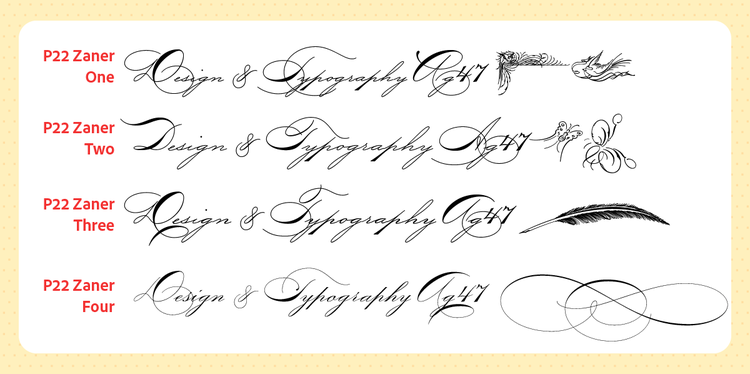 P22 Zaner
One
Design & Typography Ag47
P22 Zaner
Two
Design & Typography Ag47
P22 Zaner
Three
Design & Typography Ag47
P22 Zaner
Four
Design & Typography Ag47